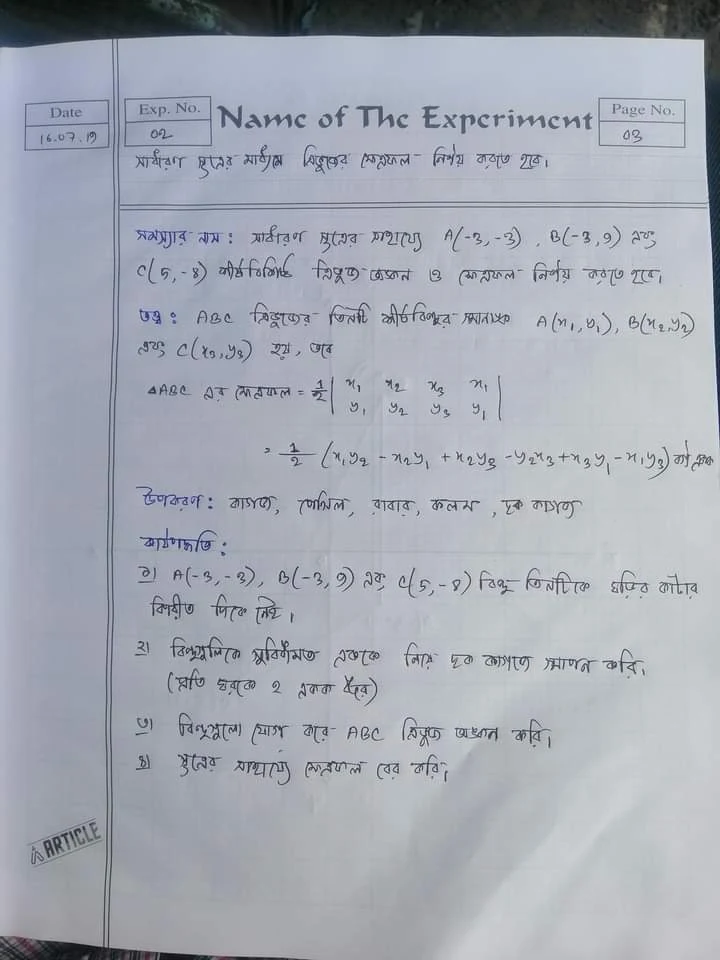 Date
16.07.19
Exp. No.
02
Name of The Experiment
Page No.
03
সাধারণ সূত্রের মাধ্যমে ত্রিভুজের ক্ষেত্রফল নির্ণয় করতে হবে।
সমস্যার নাম : সাধারণ সূত্রের সাহায্যে A(-3, -3) , B(-3, 9) এবং
C(5, -8) শীর্ষবিশিষ্ট ত্রিভুজ অঙ্কন ও ক্ষেত্রফল নির্ণয় করতে হবে।
তত্ত্ব : ABC ত্রিভুজের তিনটি শীর্ষবিন্দুর স্থানাঙ্ক A(x₁, y₁), B(x₂, y₂)
এবং C(x₃, y₃) হয়, তবে
△ABC এর ক্ষেত্রফল = 1/2 | x₁ x₂ x₃ x₁ |
y₁ y₂ y₃ y₁
= 1/2 (x₁y₂ - x₂y₁ + x₂y₃ - y₂x₃ + x₃y₁ - x₁y₃) বর্গ একক
উপকরণ : কাগজ, পেন্সিল, রাবার, কলম , ছক কাগজ
কার্যপদ্ধতি :
১) A(-3, -3), B(-3, 9) এবং C(5, -8) বিন্দু তিনটিকে ঘড়ির কাটার
বিপরীত দিকে নেই।
২) বিন্দুগুলিকে সুবিধামত এককে নিয়ে ছক কাগজে স্থাপন করি।
(প্রতি ঘরকে ২ একক ধরে)
৩) বিন্দুগুলো যোগ করে ABC ত্রিভুজ অঙ্কন করি।
৪) সূত্রের সাহায্যে ক্ষেত্রফল বের করি।
ARTICLE